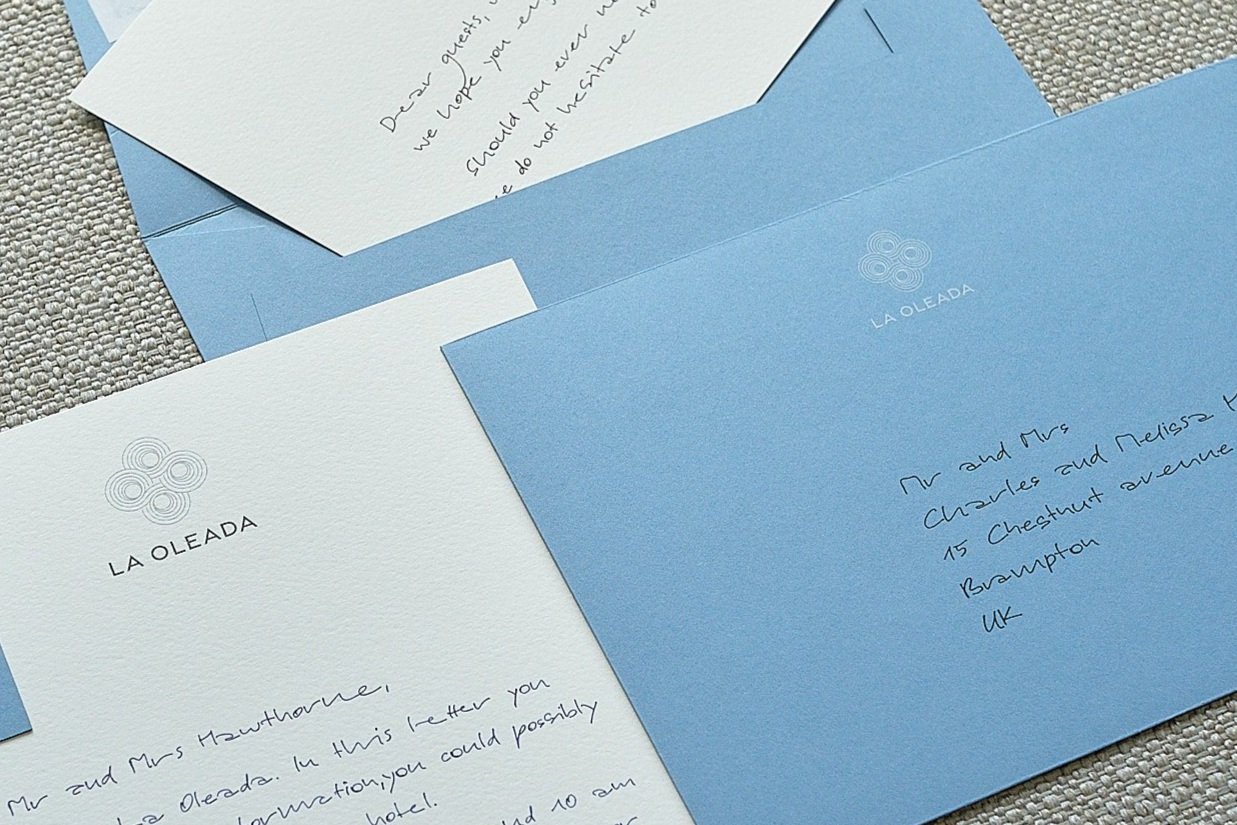 Dear guests,
we hope you
should you ever
do not hesitate to
LA OLEADA
Mr and Mrs
Charles and Melissa
15 Chestnut avenue
Brampton
UK
LA OLEADA
Mr and Mrs Hawthorne,
Oleada. In this letter you
you could possibly
hotel.
10 am